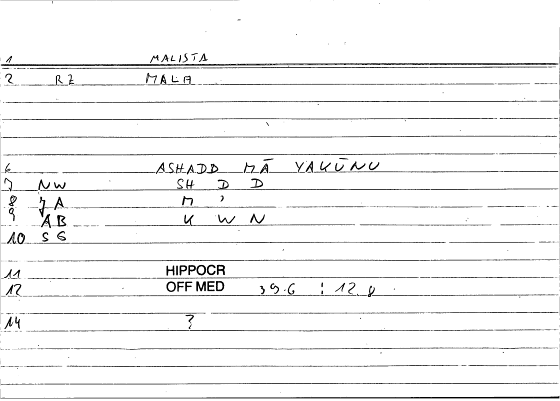 1 MALISTA
2 RZ MALA
6 ASHADD MĀ YAKŪNU
7 NW SH D D
8 JA M ʾ
9 AB K W N
10 SG
11 HIPPOCR
12 OFF MED 39.6 : 12.8
14 ?